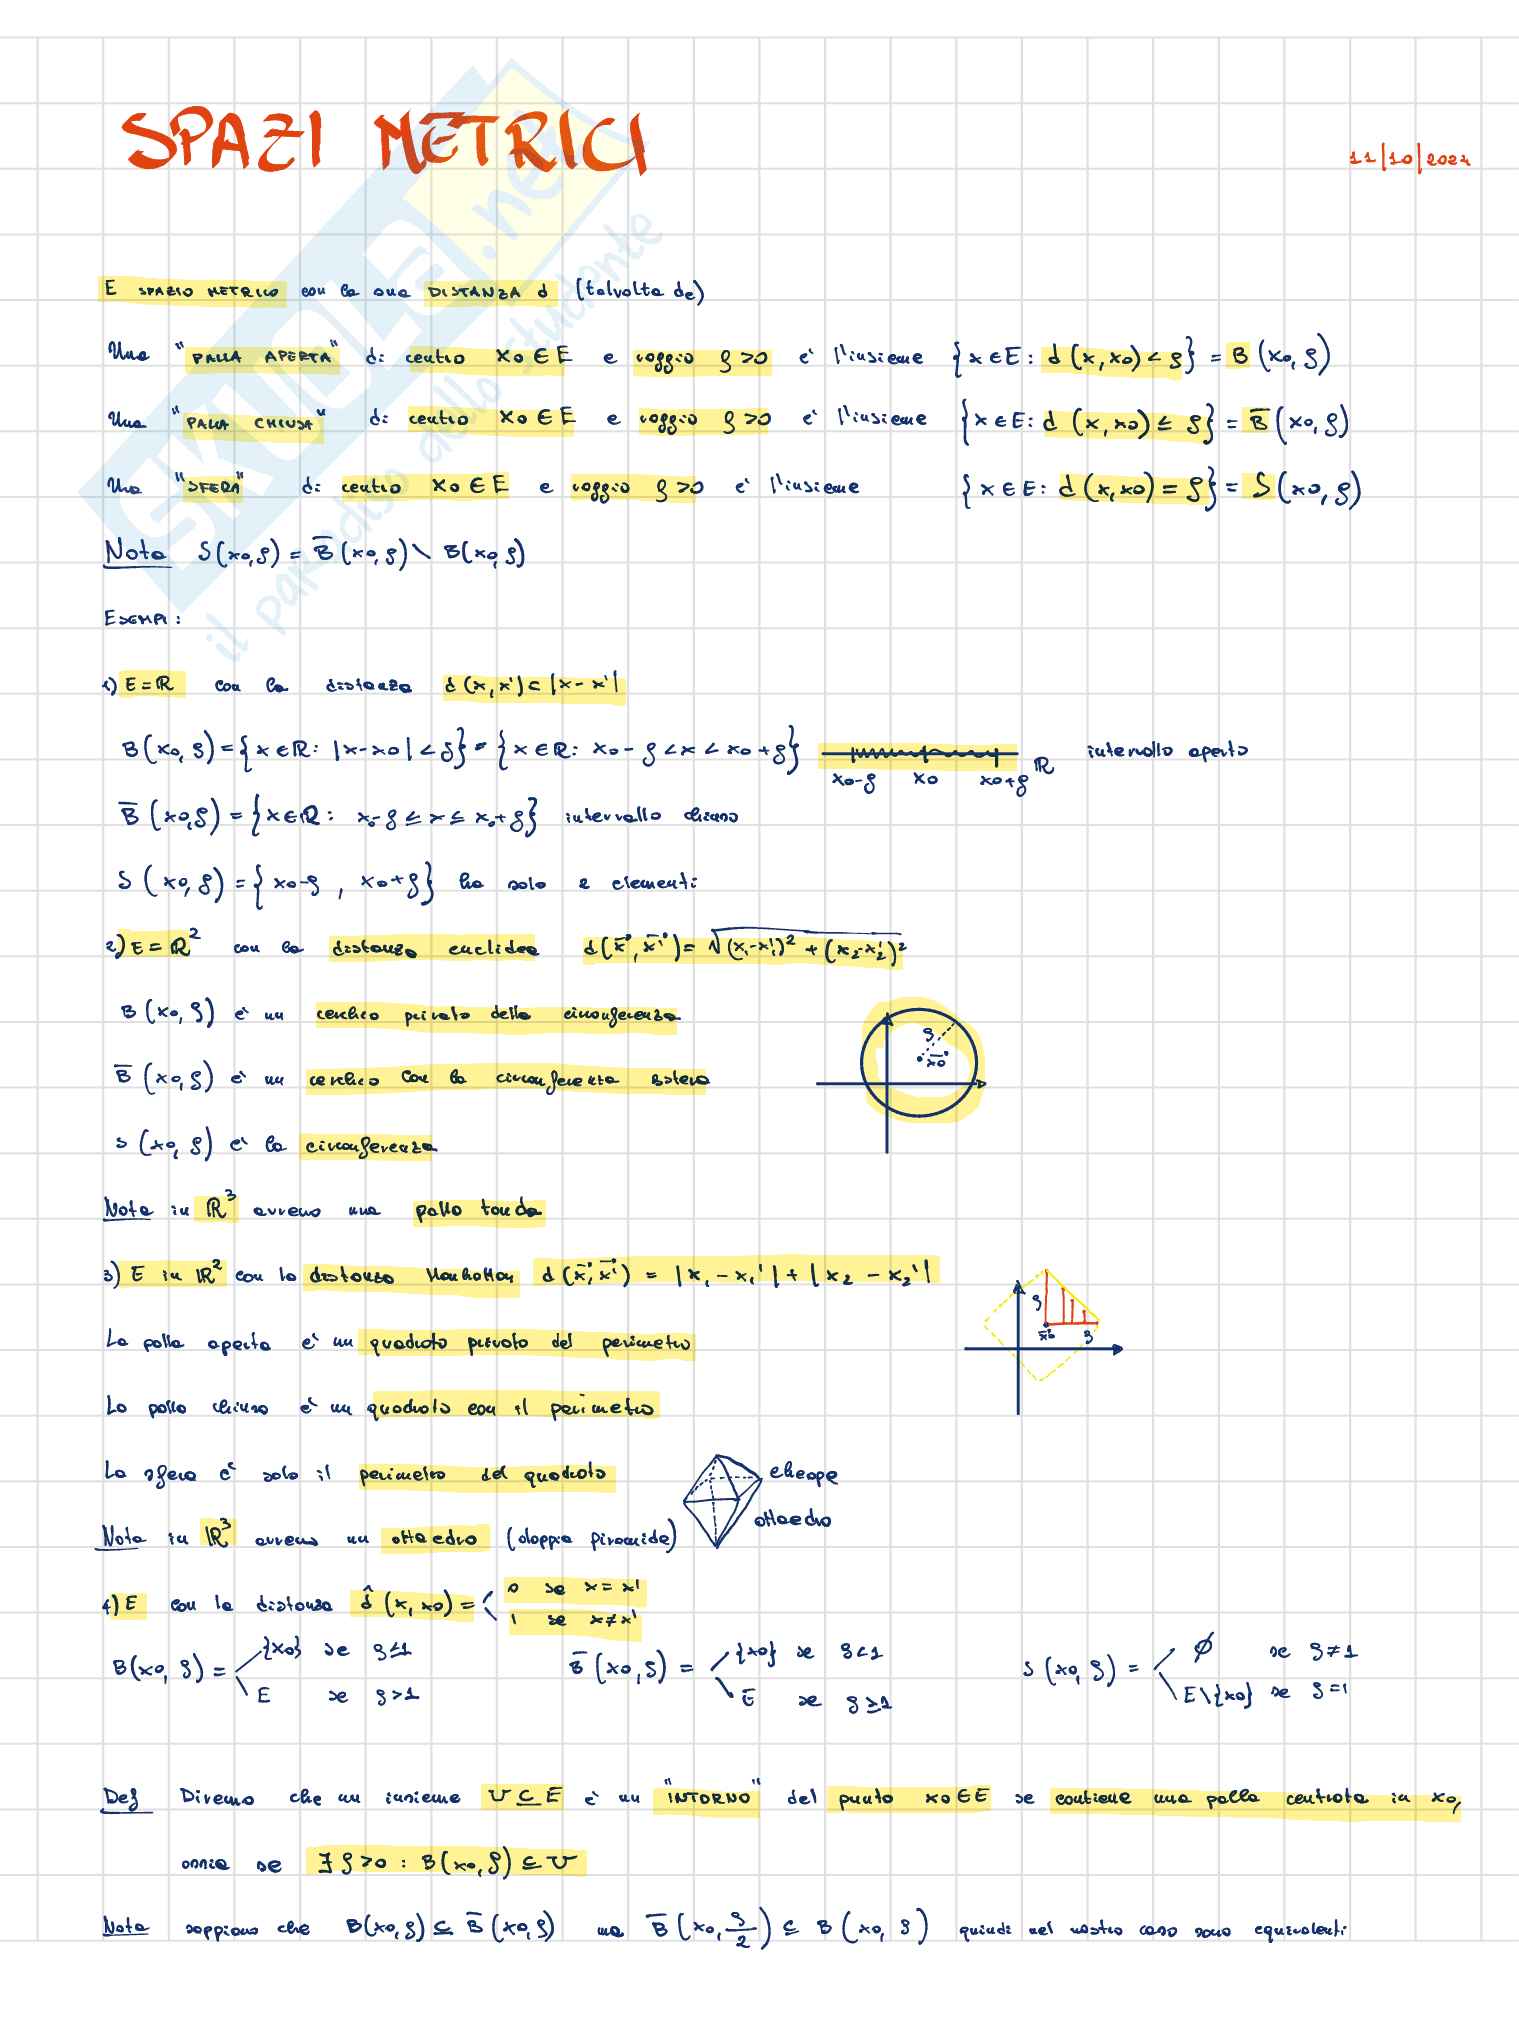 SPAZI METRICI
11|10|2024
SKUOLA.net
il paradiso dello studente
E SPAZIO METRICO con la sua DISTANZA d (talvolta dE)
Una "PALLA APERTA" di centro x0 ∈ E e raggio ρ>0 e' l'insieme {x ∈ E: d(x, x0) < ρ} = B(x0, ρ)
Una "PALLA CHIUSA" di centro x0 ∈ E e raggio ρ>0 e' l'insieme {x ∈ E: d(x, x0) ≤ ρ} = B̅(x0, ρ)
Una "SFERA" di centro x0 ∈ E e raggio ρ>0 e' l'insieme {x ∈ E: d(x, x0) = ρ} = S(x0, ρ)
Nota S(x0, ρ) = B̅(x0, ρ) \ B(x0, ρ)
ESEMPI:
1) E = ℝ con la distanza d(x, x') = |x - x'|
B(x0, ρ) = {x ∈ ℝ: |x-x0| < ρ} = {x ∈ ℝ: x0 - ρ < x < x0 + ρ} x0-ρ x0 x0+ρ ℝ intervallo aperto
B̅(x0, ρ) = {x ∈ ℝ: x0-ρ ≤ x ≤ x0+ρ} intervallo chiuso
S(x0, ρ) = {x0-ρ, x0+ρ} ha solo 2 elementi
2) E = ℝ² con la distanza euclidea d(x⃗, x⃗') = √(x1-x1')² + (x2-x2')²
B(x0, ρ) e' un cerchio privato della circonferenza
ρ x⃗0
B̅(x0, ρ) e' un cerchio con la circonferenza intera
S(x0, ρ) e' la circonferenza
Nota in ℝ³ avremo una palla tonda
3) E in ℝ² con la distanza Manhattan d(x⃗, x⃗') = |x1 - x1'| + |x2 - x2'|
ρ x⃗0 ρ
La palla aperta e' un quadrato privato del perimetro
La palla chiusa e' un quadrato con il perimetro
La sfera e' solo il perimetro del quadrato
cheope
ottaedro
Nota in ℝ³ avremo un ottaedro (doppia piramide)
4) E con la distanza d̂(x, x0) = 0 se x = x'
1 se x ≠ x'
B(x0, ρ) = {x0} se ρ≤1 B̅(x0, ρ) = {x0} se ρ<1 S(x0, ρ) = ∅ se ρ≠1
E se ρ>1 E se ρ≥1 E\{x0} se ρ=1
Def Diremo che un insieme U ⊆ E e' un "INTORNO" del punto x0 ∈ E se contiene una palla centrata in x0,
ossia se ∃ ρ>0 : B(x0, ρ) ⊆ U
Nota sappiamo che B(x0, ρ) ⊆ B̅(x0, ρ) ma B̅(x0, ρ/2) ⊆ B(x0, ρ) quindi nel nostro caso sono equivalenti